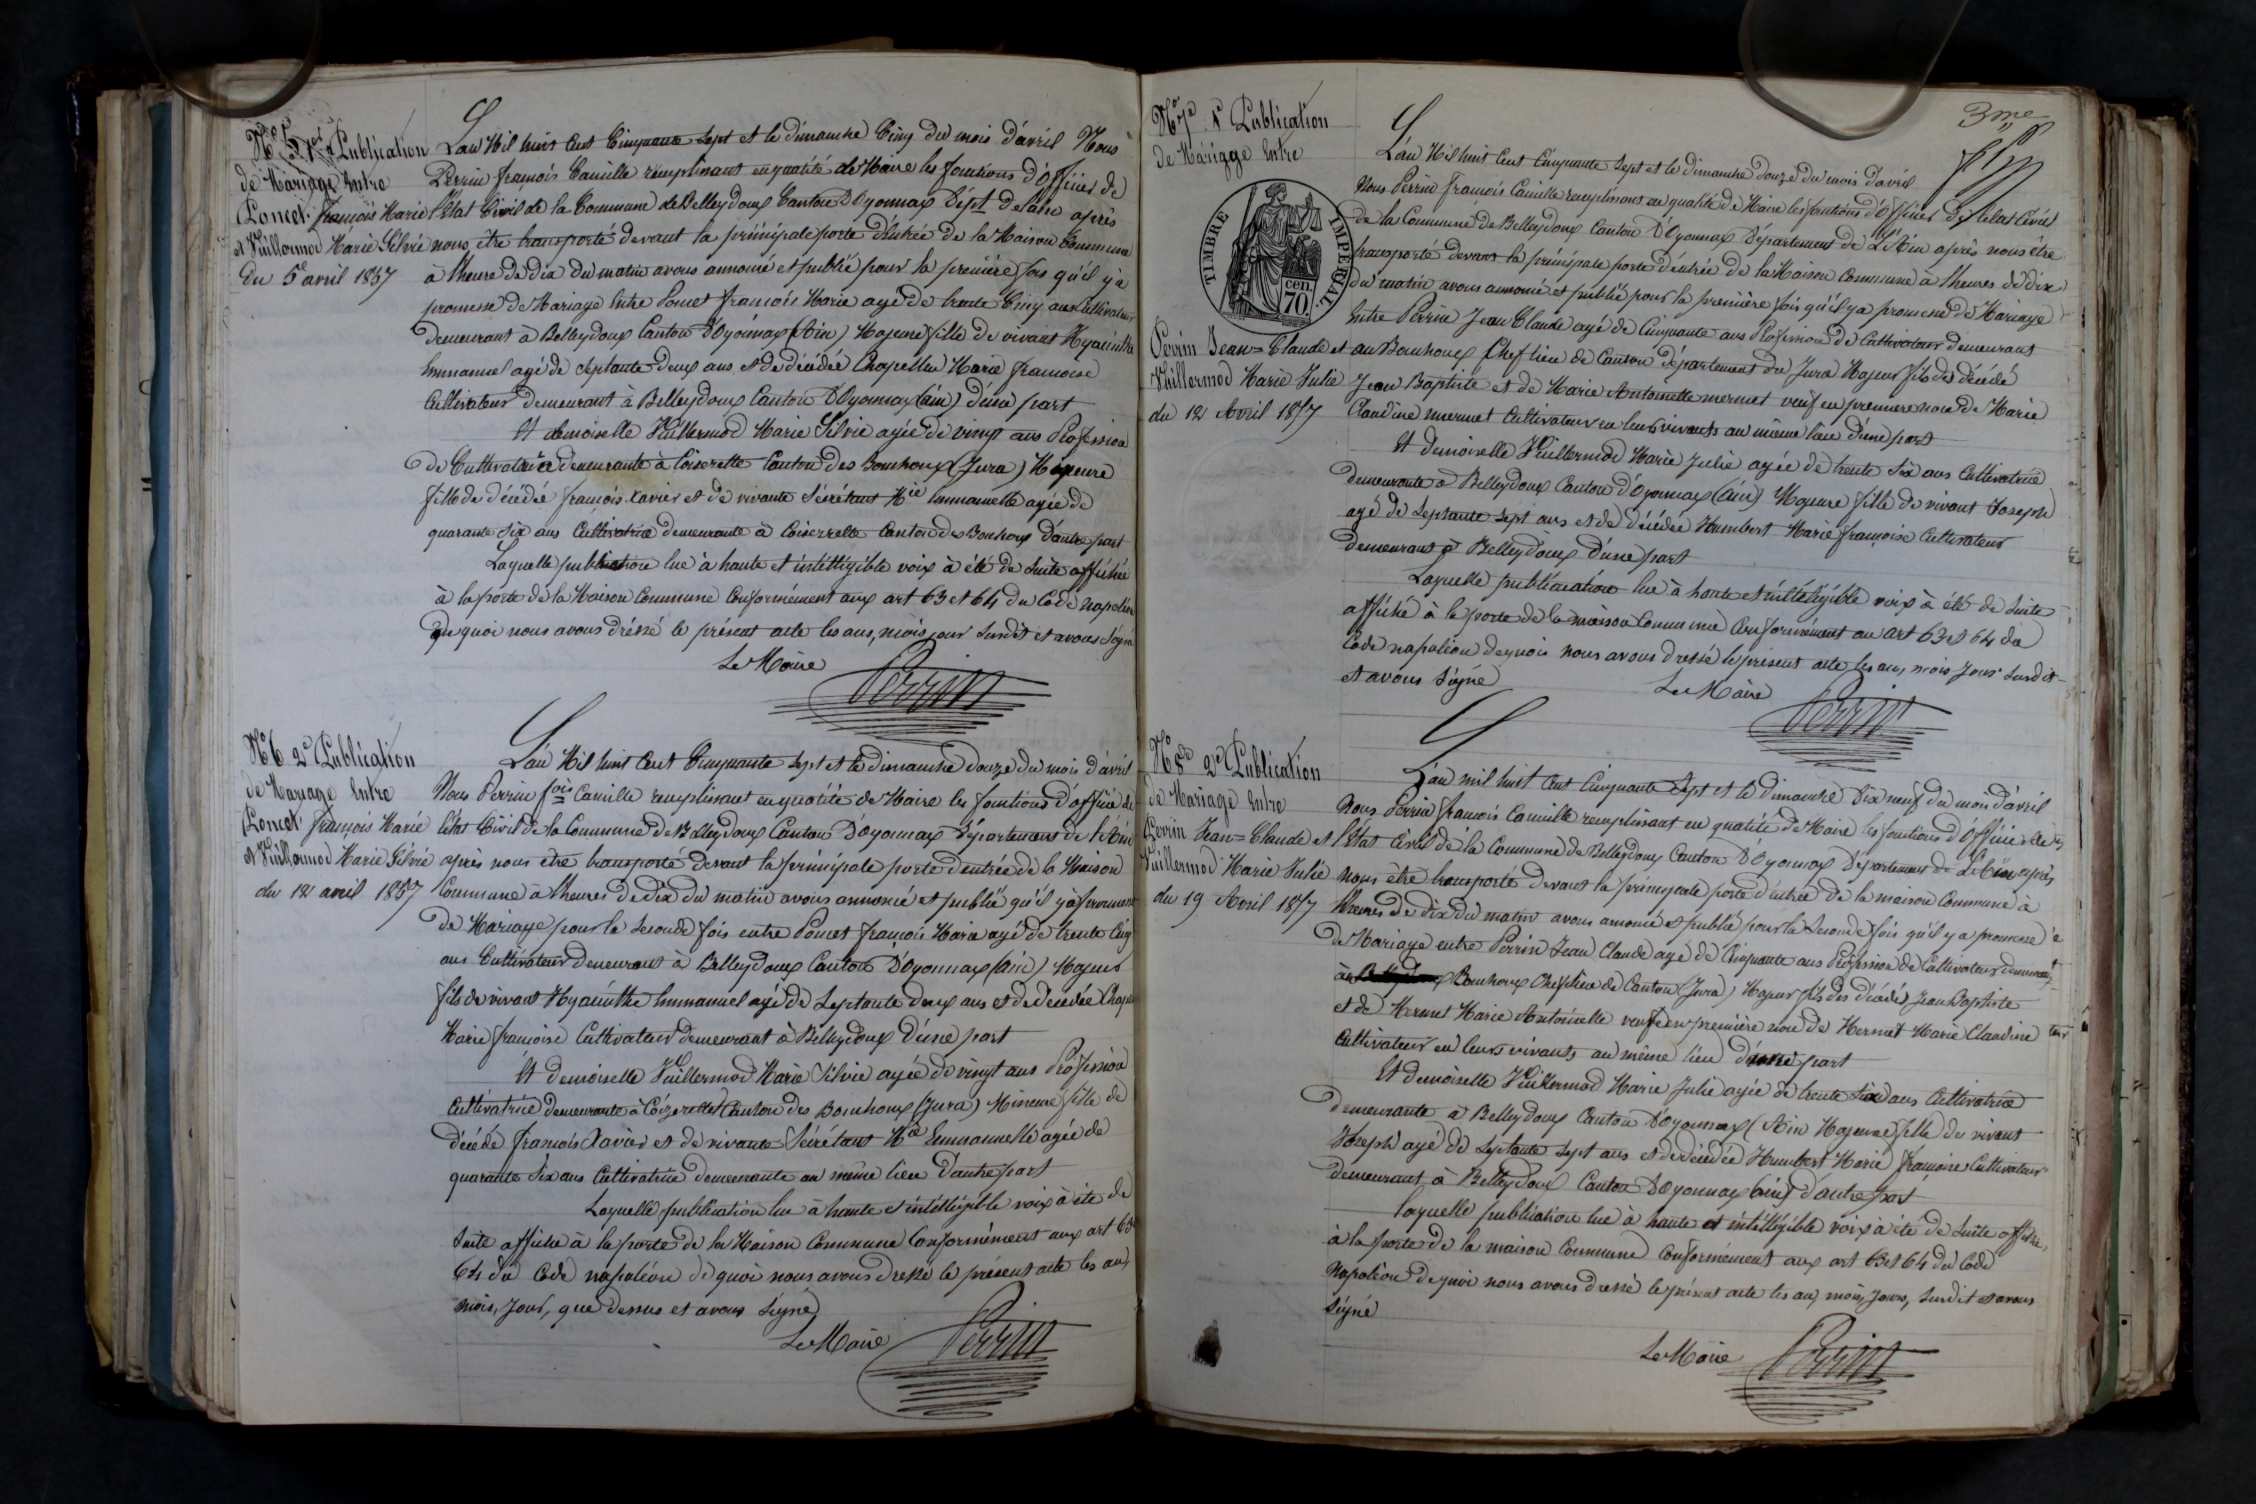 No 5 1ere Publication
de Mariage Entre
Poncet françois Marie
et Vuillermod Marie Silvie
du 5 avril 1857
L'an Mil huit Cent Cinquante Sept et le dimanche Cinq du mois d'avril Nous
Perrin françois Camille remplissant en qualité de Maire les fonctions d'officier de
l'État Civil de la Commune de Belleydoux Canton D'Oyonnax Dépt de l'ain après
nous être transporté devant la principale porte d'entrée de la Maison Commune
à l'heure de dix du matin avons annoncé et publié pour la première fois qu'il y a
promesse de Mariage Entre Poncet françois Marie agé de trente Cinq ans Cultivateur
demeurant à Belleydoux Canton d'Oyonnax (Ain) Majeure fille de vivant Hyacinthe
Emmanuel agé de septante deux ans et de décédée Chapellu Marie francoise
Cultivateur demeurant à Belleydoux Canton D'Oyonnax (ain) d'une part
Et demoiselle Vuillermod Marie Silvie agée de vingt ans Profession
de Cultivatrice demeurante à Coiserette Canton des Bouchoux (Jura)
fille de décédé françois Xavier et de vivante Sécrétant Mie Emmanuelle agée de
quarante Six ans Cultivatrice demeurante à Coiserette Canton des Bouchoux d'autre part
Laquelle publication lue à haute et intélligible voix à été de suite affichée
à la porte de la Maison Commune Conformément aux art 63 et 64 du Code napoléon
de quoi nous avons dréssé le présent acte les ans, mois jour Susdit et avons Signé
Le Maire
Perrin
No 6 2e Publication
de Mariage Entre
Poncet françois Marie
et Vuillermod Marie Silvie
du 12 avril 1857
L'an Mil huit Cent Cinquante Sept et le dimanche douze du mois d'avril
Nous Perrin fois Camille remplissant en qualité de Maire les fonctions d'officié de
l'état Civil de la Commune de Belleydoux Canton D'Oyonnax Département de l'Ain
après nous être transporté devant la principale porte d'entrée de la Maison
Commune à l'heures de dix du matin avons annoncé et publié qu'il y à promesse
de Mariage pour la Seconde fois entre Poncet françois Marie agé de trente Cinq
ans Cultivateur demeurant à Belleydoux Canton D'Oyonnax (Ain) Majeur
fils de vivant Hyacinthe Emmanuel agé de Septante deux ans et de décédée
Marie francoise Cultivateur demeurant à Belleydoux d'une part
Et demoiselle Vuillermod Marie Silvie agée de vingt ans Profession
Cultivatrice demeurante à Coizerette Canton des Bouchoux (Jura) Mineure fille de
décédé francois Xavier et de vivante Sécrétant Mie Emmanuelle agée de
quarante Six ans Cultivatrice demeurante au même lieu d'autre part
Laquelle publication lue à haute et intélligible voix à été de
Suite affiché à la porte de la Maison Commune Conformément aux art 63
64 du Code napoléon de quoi nous avons dréssé le présent acte les an,
mois, jour, que dessus et avons Signé
Le Maire
Perrin
3me
No 7 1e Publication
de Mariage Entre
TIMBRE IMPERIAL
cen.
70.
Perrin Jean=Claude et
Vuillermod Marie Julie
du 12 Avril 1857
L'an Mil huit Cent Cinquante Sept et le dimanche douze du mois d'avril
Nous Perrin françois Camille remplissant en qualité de Maire les fonctions d'officier de l'état Civil
de la Commune de Belleydoux Canton D'Oyonnax Département de L'Ain après nous être
transporté devant la principale porte d'éntrée de la Maison Commune à l'heures de dix
du matin avons annoncé et publié pour la première fois qu'il y a promesse de Mariage
Entre Perrin Jean Claude agé de Cinquante ans Profession de Cultivateur demeurant
au Bouchoux Chef lieu de Canton département du Jura Majeur fils des décédé
Jean Baptiste et de Marie Antoinette mermet veuf en premiere noce de Marie
Claudine mermet Cultivateur en leurs vivants au même lieu d'une part
Et demoiselle Vuillermod Marie Julie agée de trente Six ans Cultivatrice
demeurante à Belleydoux Canton d'Oyonnax (Ain) Majeure fille de vivant Joseph
agé de Septante Sept ans et de décédée Humbert Marie françoise Cultivateur
demeurant à Belleydoux d'une part
Laquelle publication lue à haute et intélligible voix à été de Suite
affiché à la porte de la maison Commune Conformément au art 63 et 64 du
Code napoléon de quoi nous avons dressé le présent acte les an, mois jour Susdit
et avons Signé
Le Maire
Perrin
No 8 2e Publication
de Mariage Entre
Perrin Jean=Claude et
Vuillermod Marie Julie
du 19 Avril 1857
L'an mil huit Cent Cinquante Sept et le dimanche Dix neuf du mois d'avril
Nous Perrin francois Camille remplissant en qualité de Maire les fonctions d'officier de
l'État Civil de la Commune de Belleydoux Canton D'Oyonnax Département de L'Ain après
Nous être transporté devant la principale porte d'entrée de la maison Commune à
l'heures de dix du matin avons annoncé et publié pour la Seconde fois qu'il y a promesse
de Mariage entre Perrin Jean Claude agé de Cinquante ans Profession de Cultivateur demeurant
Bouchoux Chef lieu de Canton (Jura) Majeur fils des décédés Jean Baptiste
et de Mermet Marie Antoinette veuf en première noce de Mermet Marie Claudine
Cultivateur en leurs vivants au même lieu d'une part
Et demoiselle Vuillermod Marie Julie agée de trente Six ans Cultivatrice
demeurante à Belleydoux Canton D'Oyonnax (Ain Majeure fille de vivant
Joseph agé de Septante Sept ans et de décédée Humbert Marie francoise Cultivateur
demeurant à Belleydoux Canton D'Oyonnax (ain) d'autre part
laquelle publication lue à haute et intélligible voix à été de Suite affiché
à la porte de la maison Commune Conformément aux art 63 et 64 du Code
Napoléon de quoi nous avons dressé le présent acte les an, mois, jour, Susdit et avons
Signé
Le Maire
Perrin